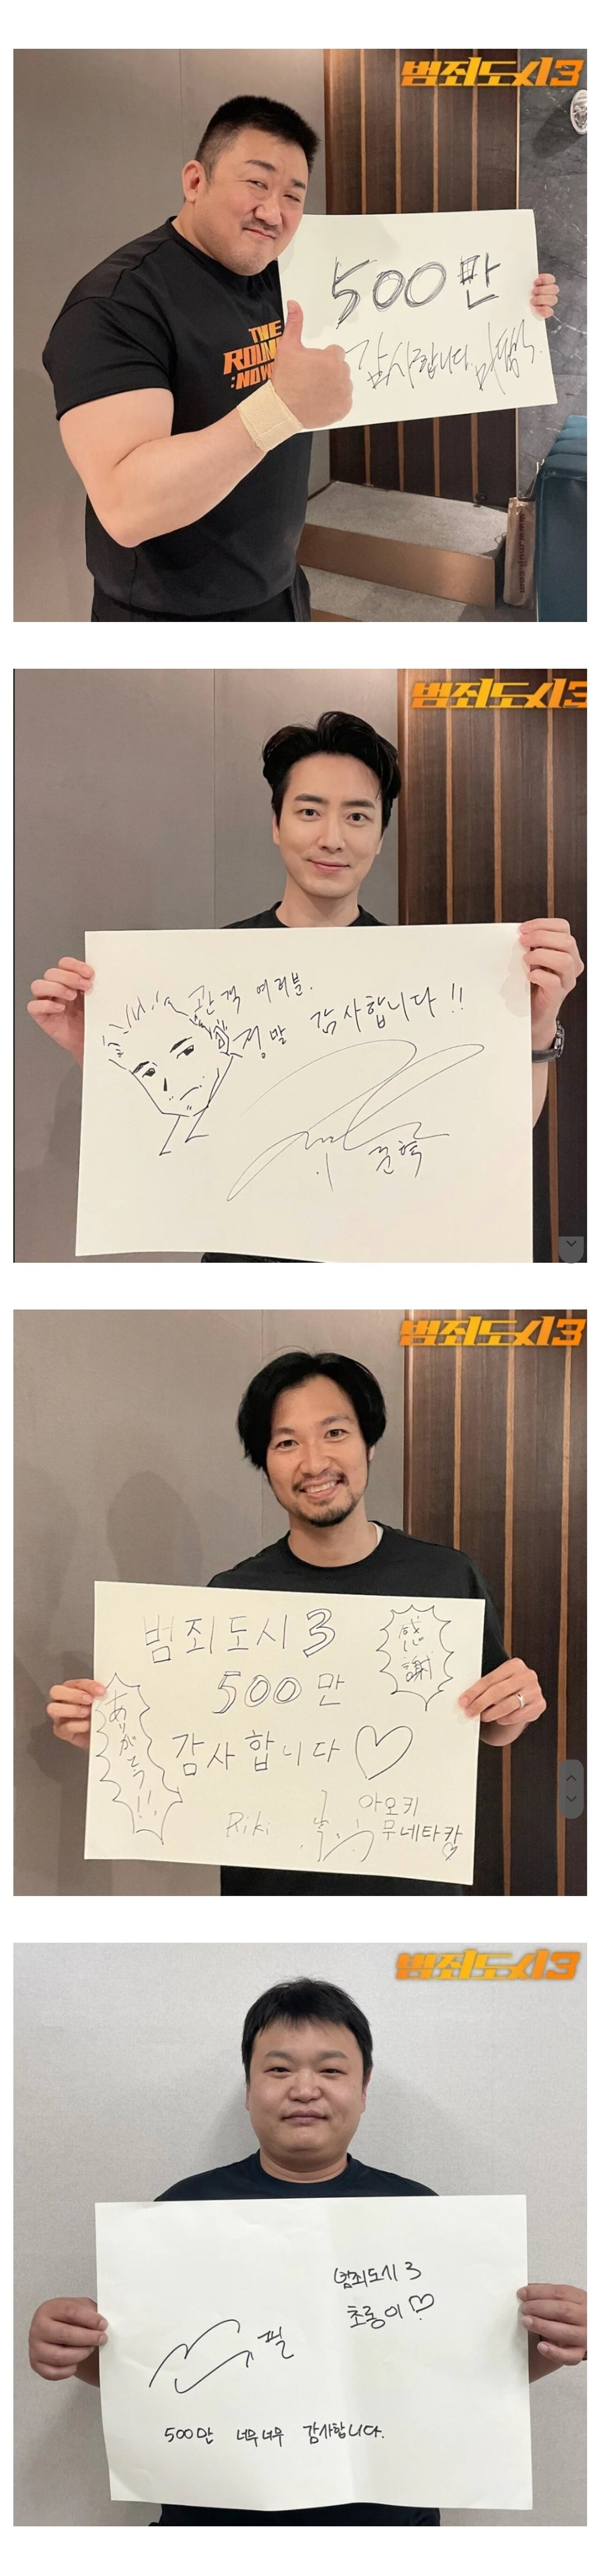 범죄도시3
500만
감사합니다. 마동석.
THE
ROUN
:NOW
www.muji.com
범죄도시3
관객 여러분.
정말 감사합니다!!
준혁
범죄도시3
범죄도시3
500만
감사합니다♡
感
謝
ありがとう!!
Riki
아오키
무네타카
범죄도시3
범죄도시3
초롱이♡
필
500만 너무너무 감사합니다.